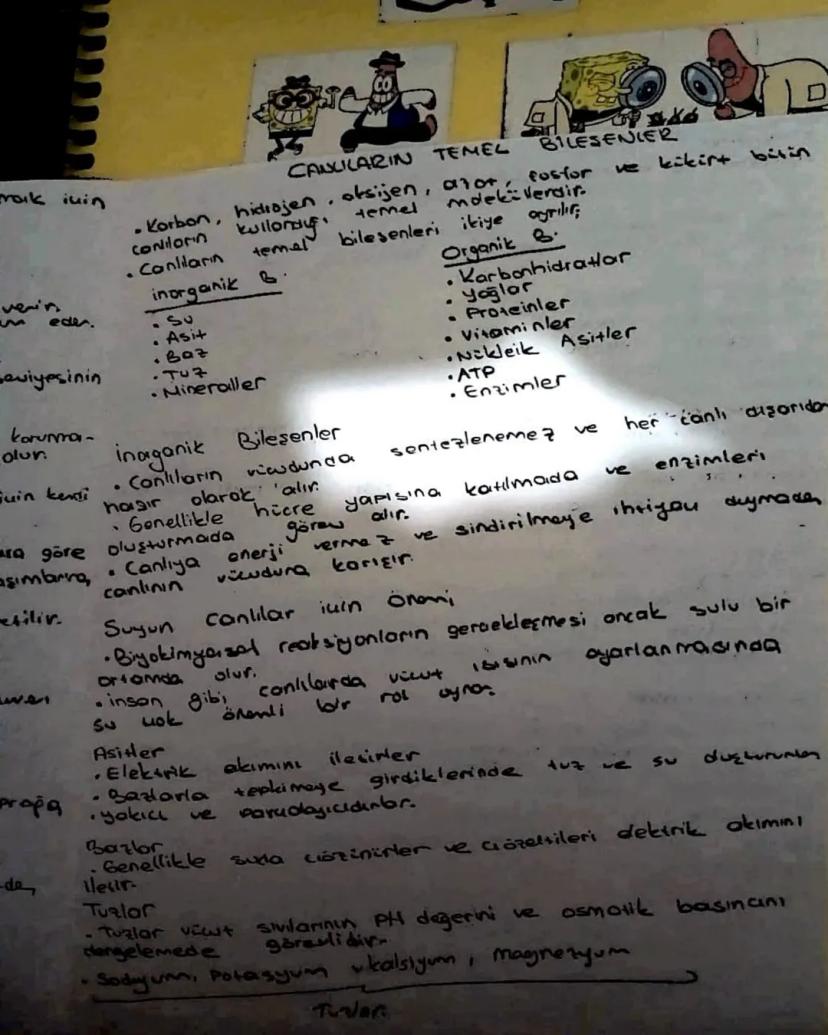 CANLILARIN TEMEL BİLEŞENLER
mak için
• Karbon, hidrojen, oksijen, azot, fosfor ve kükürt bütün
canlıların kullandığı temel moleküllerdir.
• Canlıların temel bileşenleri ikiye ayrılır;
inorganik B.
• Su
• Asit
• Baz
• Tuz
• Mineraller
Organik B.
• Karbonhidratlar
• Yağlar
• Proteinler
• Vitaminler
• Nükleik Asitler
• ATP
• Enzimler
verin
eder.
seviyesinin
koruma-
olur.
için kendi
ara göre
eşilir.
de,
inorganik Bileşenler
• Canlıların vücudunda sentezlenemez ve her canlı dışarıdan
hazır olarak alır.
• Genellikle hücre yapısına katılmada ve enzimleri
oluşturmada görev alır.
• Canlıya enerji vermez ve sindirilmeye ihtiyaç duymadan
canlının vücuduna karışır.
Suyun canlılar için önemi
• Biyokimyasal reaksiyonların gerçekleşmesi ancak sulu bir
ortamda olur.
• insan gibi canlılarda vücut ısısının ayarlanmasında
su çok önemli bir rol oynar.
Asitler
• Elektrik akımını iletirler
• Bazlarla tepkimeye girdiklerinde tuz ve su
• yakıcı ve parçalayıcıdırlar.
Bazlar
• Genellikle suda çözünürler ve çözeltileri elektrik akımını
iletir.
Tuzlar
• Tuzlar vücut sıvılarının PH değerini ve osmotik basıncını
dengelemede görevlidir.
• Sodyum, Potasyum, kalsiyum, magnezyum
Tuzları